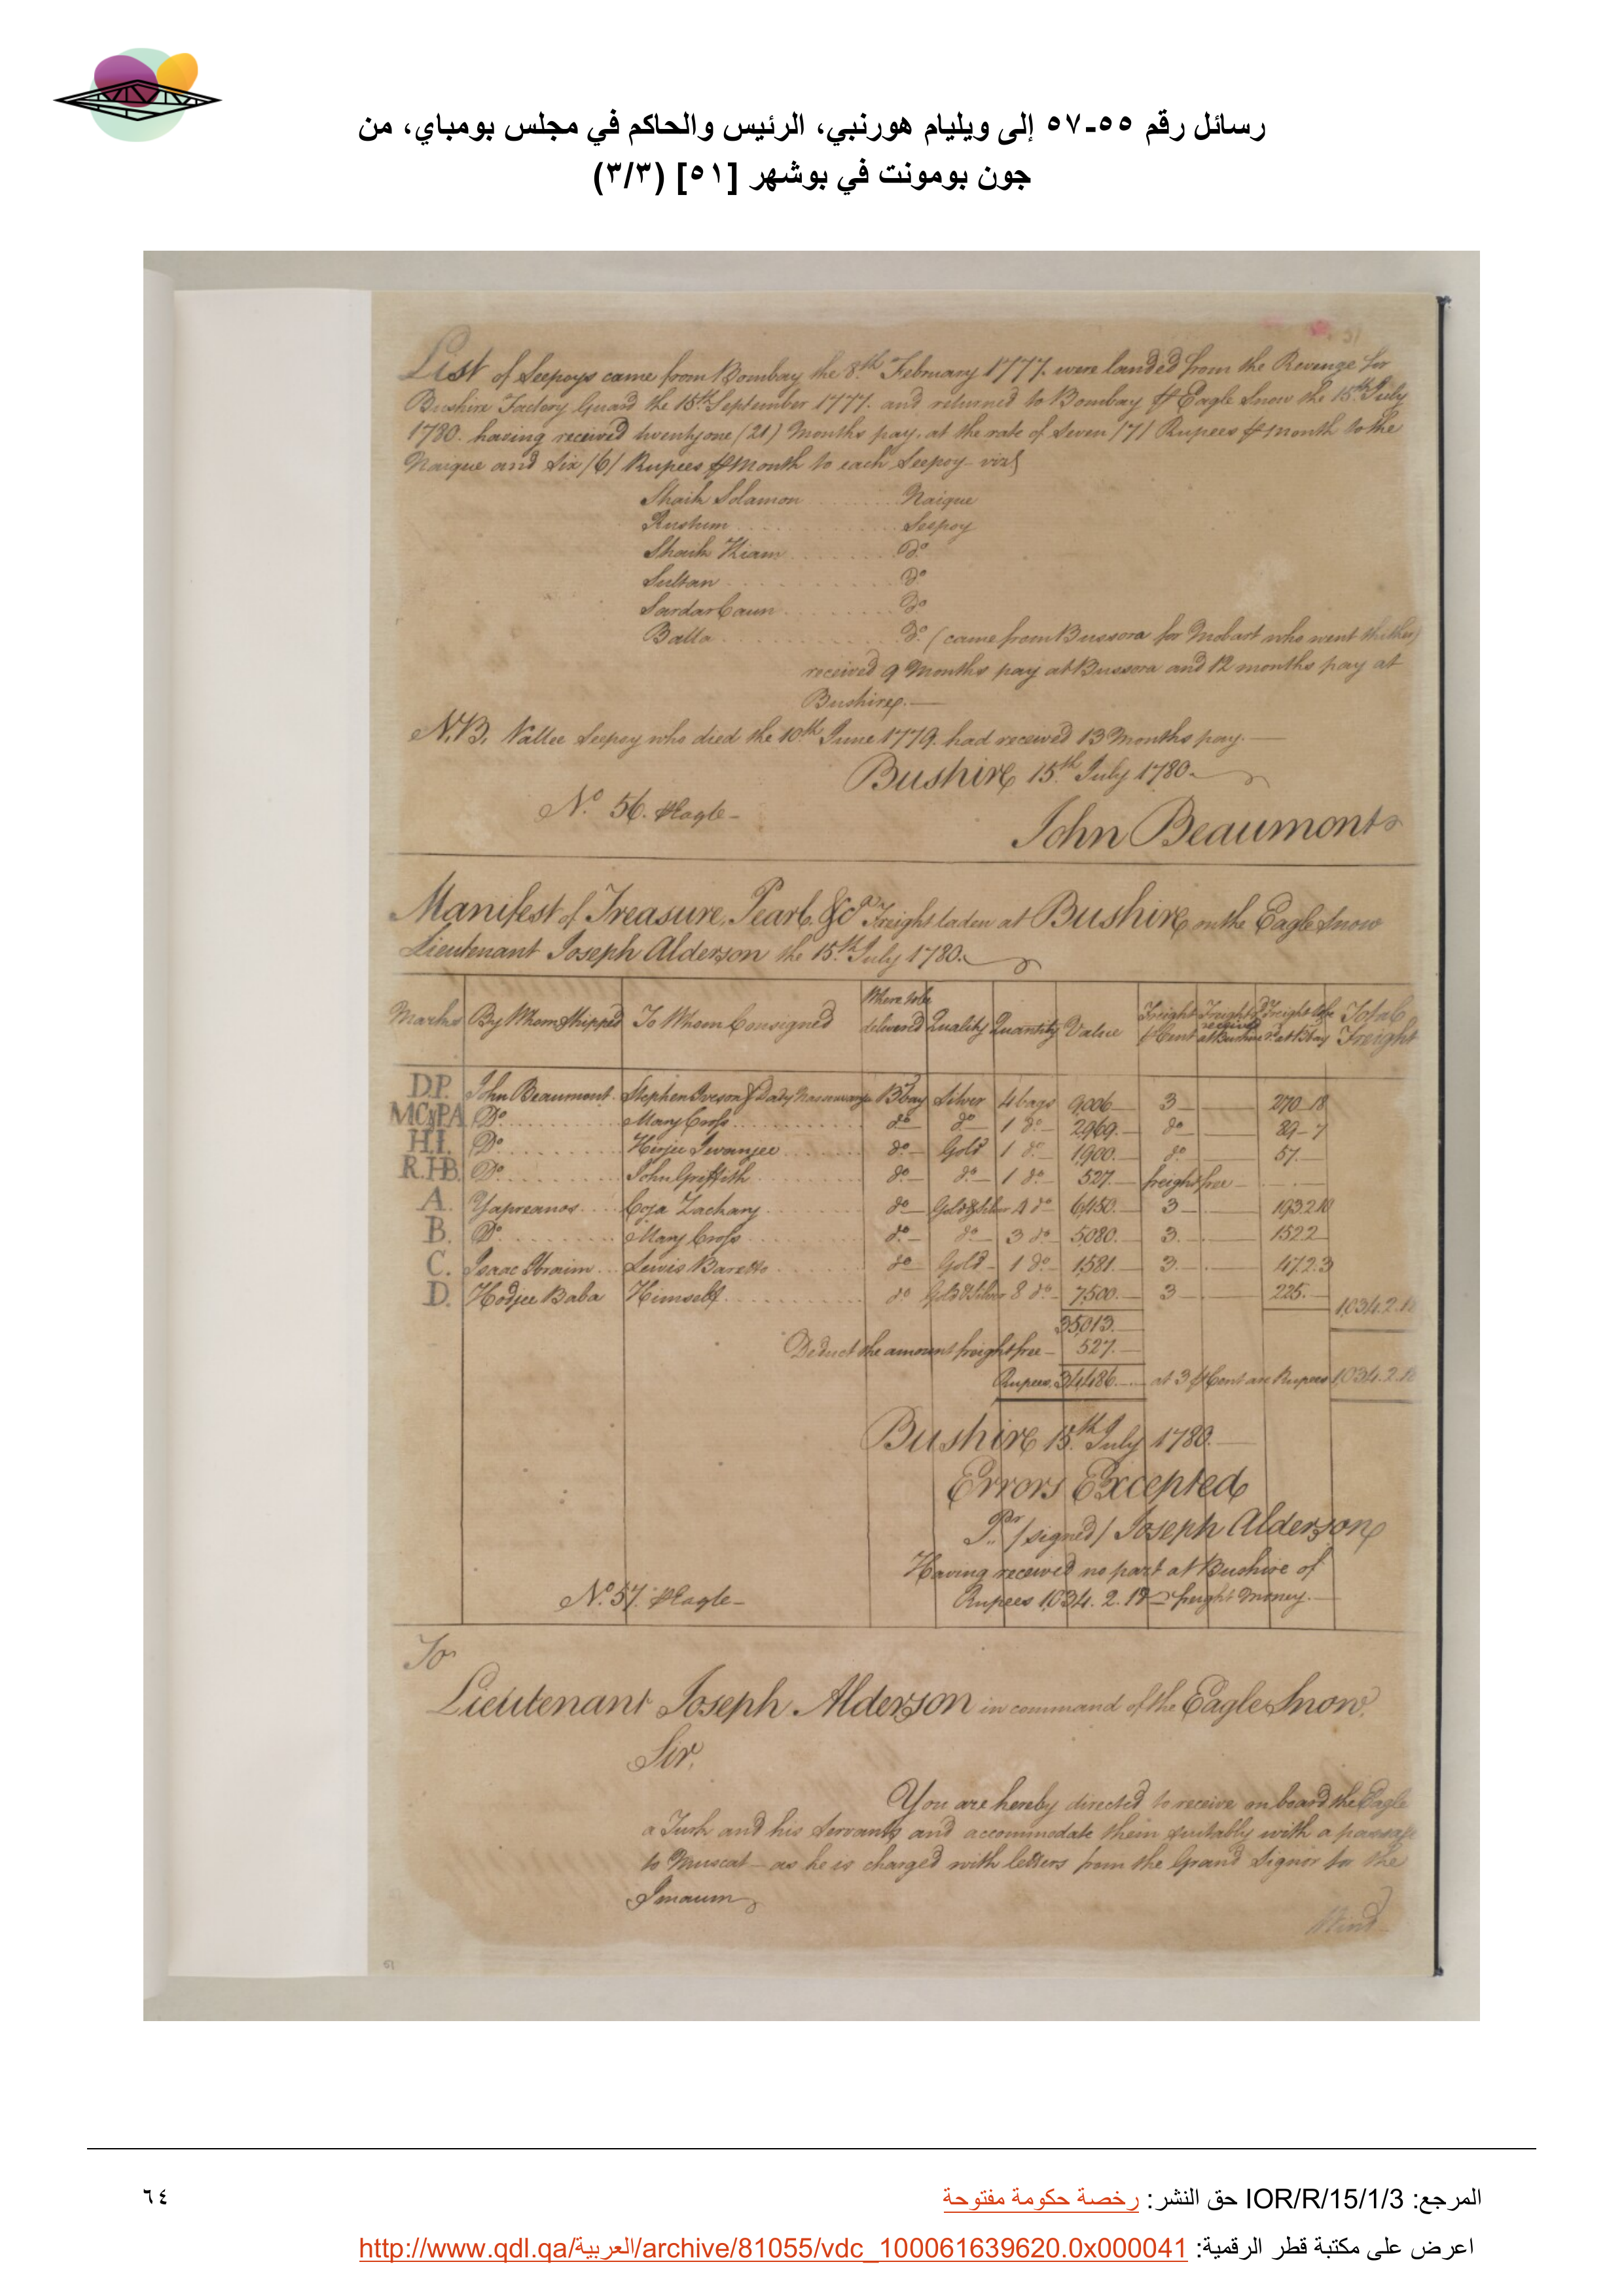 رسائل رقم ٥٥-٥٧ إلى ويليام هورنبي، الرئيس والحاكم في مجلس بومباي، من
جون بومونت في بوشهر [٥١] (٣/٣)
List of Seepoys came from Bombay the 8th February 1777. were landed from the Revenge for
Bushire Factory Guard the 15th September 1777. and returned to Bombay ⅌ Eagle Snow the 15th July
1780. having received twentyone (21) Months pay, at the rate of Seven /7/ Rupees ⅌ Month to the
Naique and Six /6/ Rupees ⅌ Month to each Seepoy vizt
Shaik Solamon Naique
Rustum Seepoy
Shaik Kiam Do
Sultan Do
Sardar Caun Do
Balla Do (came from Bussora for Mobart who went thither)
received 9 Months pay at Bussora and 12 months pay at
Bushire.
N.B. Vallee Seepoy who died the 10th June 1779. had received 13 Months pay.
Bushire 15th July 1780.
No. 56. ⅌ Eagle
John Beaumont
Manifest of Treasure, Pearl, &ca Freight laden at Bushire on the Eagle Snow
Lieutenant Joseph Alderson the 15th July 1780.
Marks By Whom Shipped To Whom Consigned Where to be delivered Quality Quantity Value Freight ⅌ Cent Freight received at Bushire Freight to be at Bbay Total Freight
D.P. John Beaumont. Stephen Iveson & Dady Nasserwanje Bbay Silver 4 bags 9,006 3 270..18
MC PA Do. Mary Cross do do 1 do 2,969. do 89..7
H.I. Do. Hirjee Jivanjee do Gold 1 do 1,900. do 57.
R.HB. Do. John Griffith do do 1 do 527. freight free
A. Yapreanos Coja Zachary do Gold & Silver 4 do 6,450. 3 193.2.0
B. Do. Mary Cross do do 3 do 5,080. 3. 152.2
C. Isaac Ibraim Lewis Baretto do Gold 1 do 1,581 3. 47.2.3
D. Hodjee Baba Himself do Gold & Silver 8 do 7,500. 3 225. 1,034.2.18
35,013.
Deduct the amount freight free 527.
Rupees 34,486. at 3 ⅌ Cent are Rupees 1,034.2.18
Bushire 15th July 1780.
Errors Excepted
Pr /signed/ Joseph Alderson
Having received no part at Bushire of
No. 57. ⅌ Eagle Rupees 1,034. 2. 18 freight money.
To
Lieutenant Joseph Alderson in command of the Eagle Snow.
Sir,
You are hereby directed to receive on board the Eagle
a Turk and his Servants and accommodate them suitably with a passage
to Muscat as he is charged with letters from the Grand Signor for the
Imaum
51
المرجع: IOR/R/15/1/3 حق النشر: رخصة حكومة مفتوحة
٦٤
اعرض على مكتبة قطر الرقمية: http://www.qdl.qa/العربية/archive/81055/vdc_100061639620.0x000041